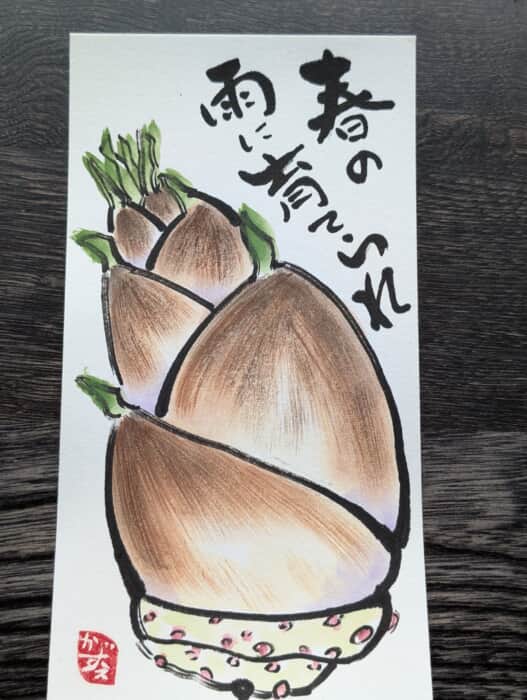 春の
雨に
育てられ
かずえ